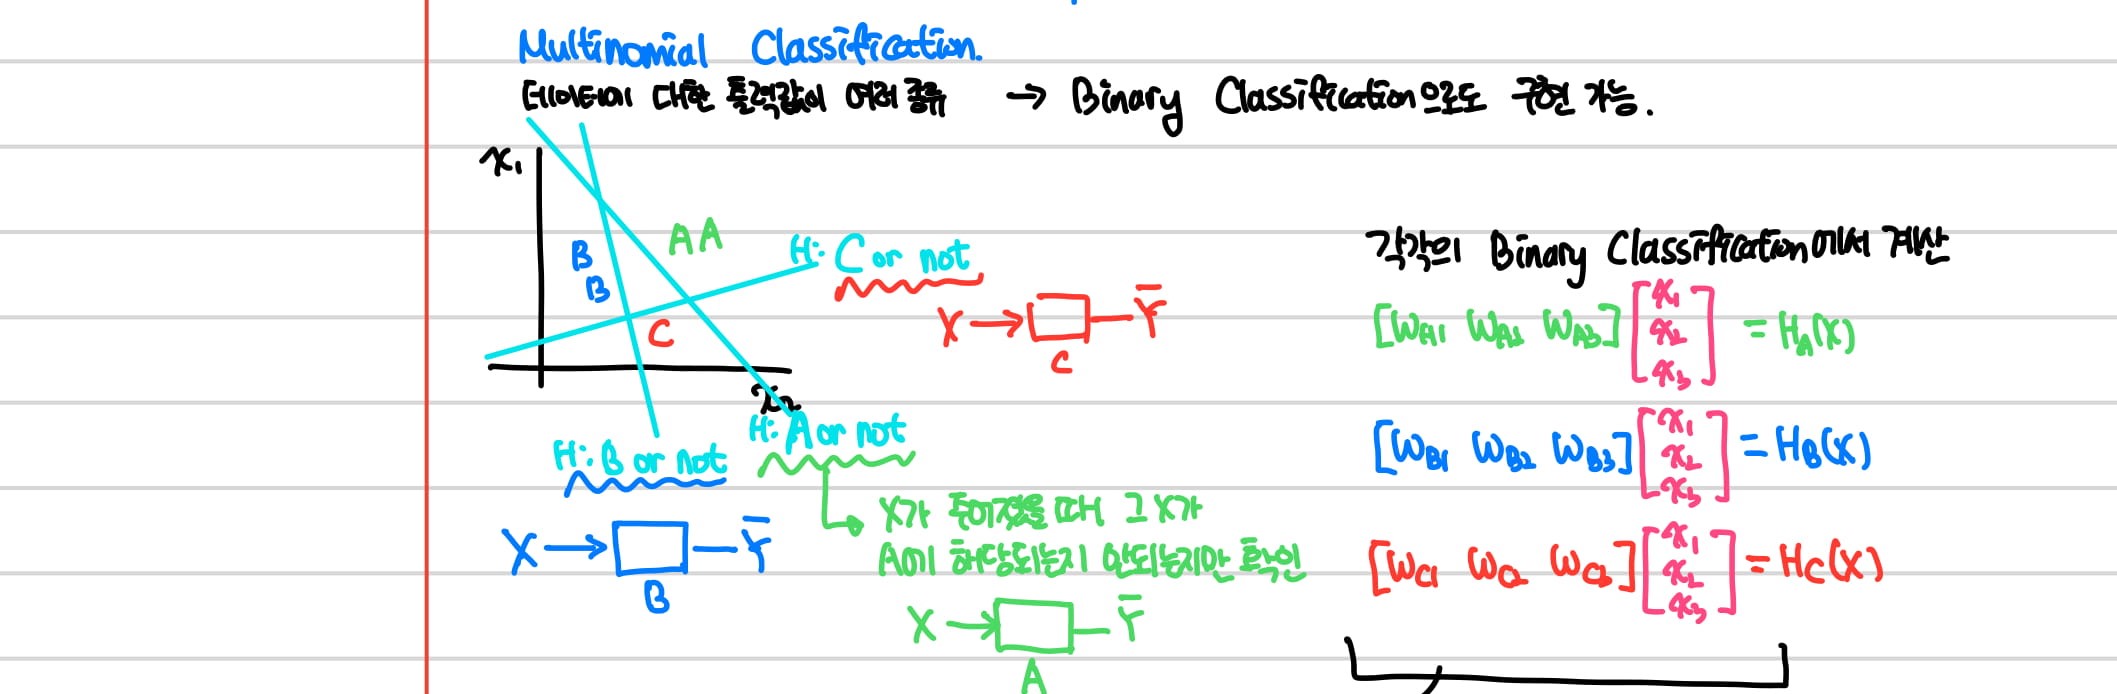 Multinomial Classification.
데이터에 대한 출력값이 여러 종류 → Binary Classification으로도 구현 가능.
x₁
A A
B
B
C
x₂
H: C or not
X → C — Ȳ
H: B or not
X → B — Ȳ
H: A or not
X가 주어졌을 때 그 X가
A에 해당되는지 안되는지만 확인
X → A — Ȳ
각각의 Binary Classification에서 계산
[W_A1 W_A2 W_A3] [x₁ x₂ x₃] = H_A(X)
[W_B1 W_B2 W_B3] [x₁ x₂ x₃] = H_B(X)
[W_C1 W_C2 W_C3] [x₁ x₂ x₃] = H_C(X)